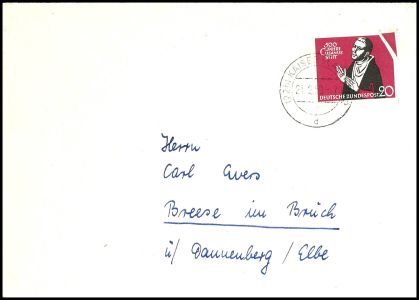 500
JAHRE
CUSANUS
STIFT
DEUTSCHE BUNDESPOST 20
d
Herrn
Carl Evers
Breese im Bruch
ü/ Dannenberg / Elbe